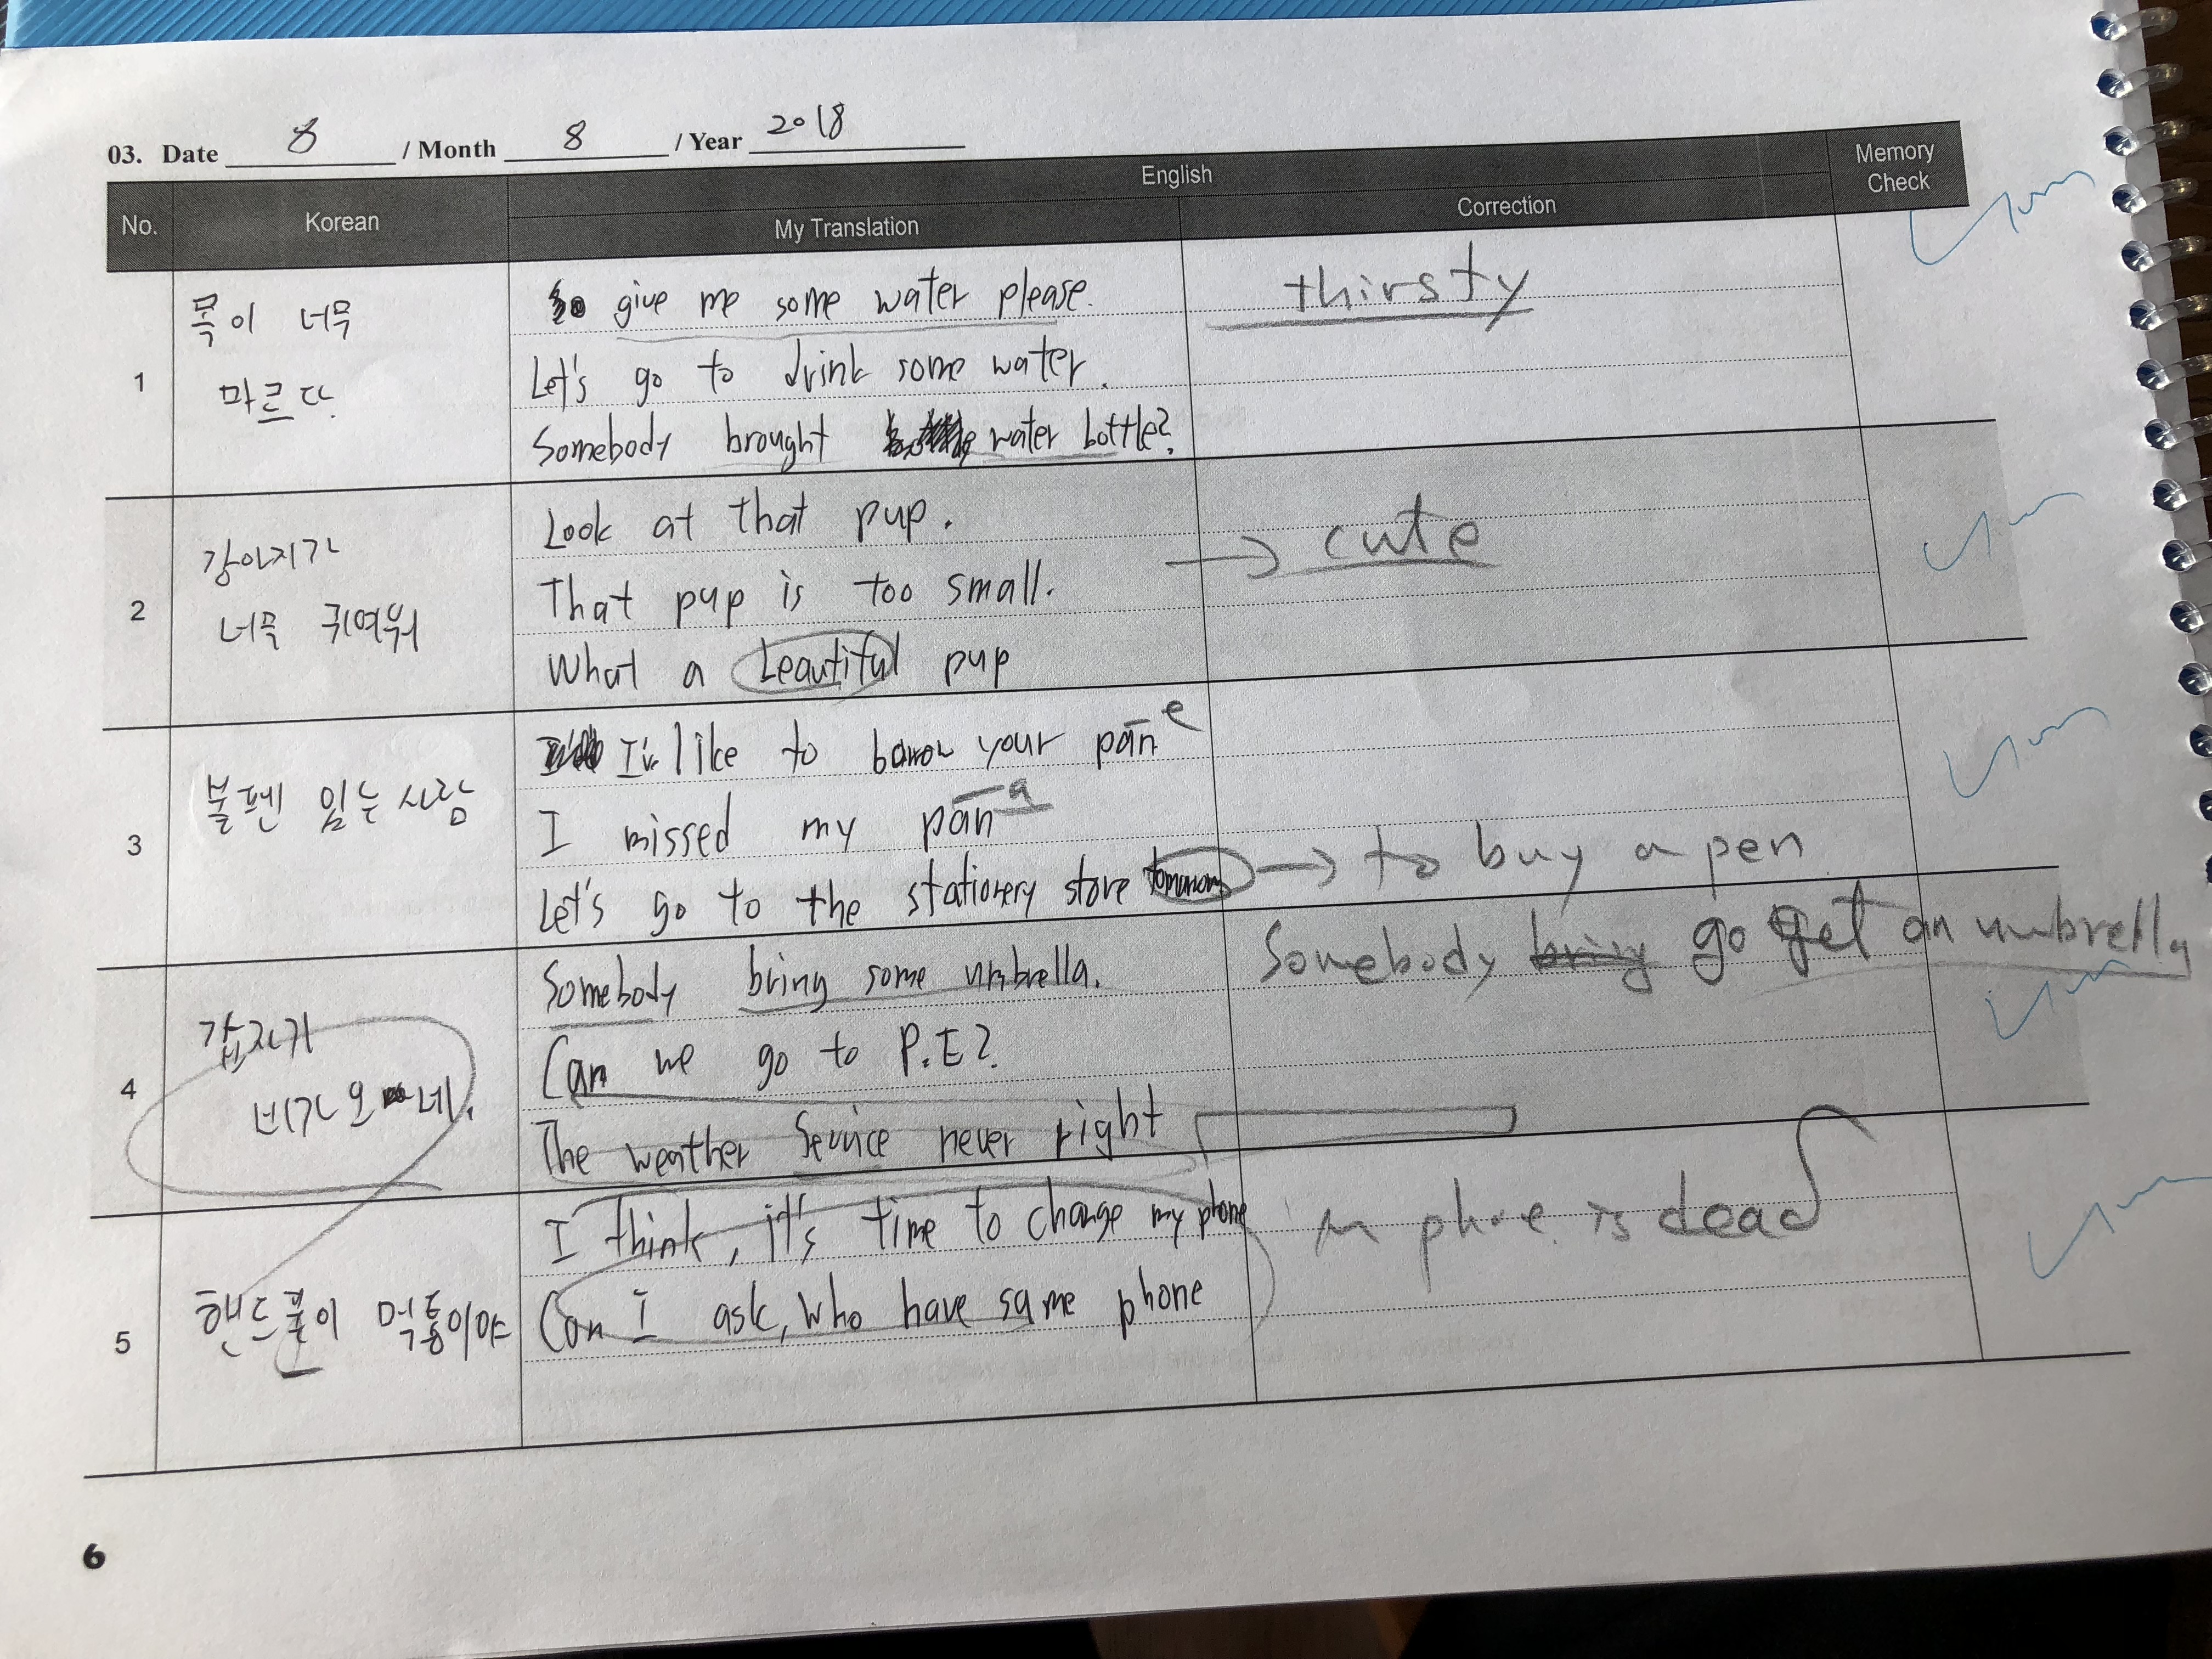 03. Date 8 / Month 8 / Year 2018
No. Korean English Memory Check
My Translation Correction
1 목이 너무 마르다.
give me some water please.
Let's go to drink some water.
Somebody brought water bottle?
thirsty
2 강아지가 너무 귀여워
Look at that pup.
That pup is too small.
What a beautiful pup
→ cute
3 볼펜 있는 사람
like to borrow your pan e
I missed my pan a
Let's go to the stationery store tomorrow
→ to buy a pen
4 갑자기 비가 오네.
Somebody bring some umbrella.
Can we go to P.E?
The weather service never right
Somebody bring go get an umbrella
5 핸드폰이 먹통이야
I think, it's time to change my phone
Can I ask, who have same phone
phone is dead
6